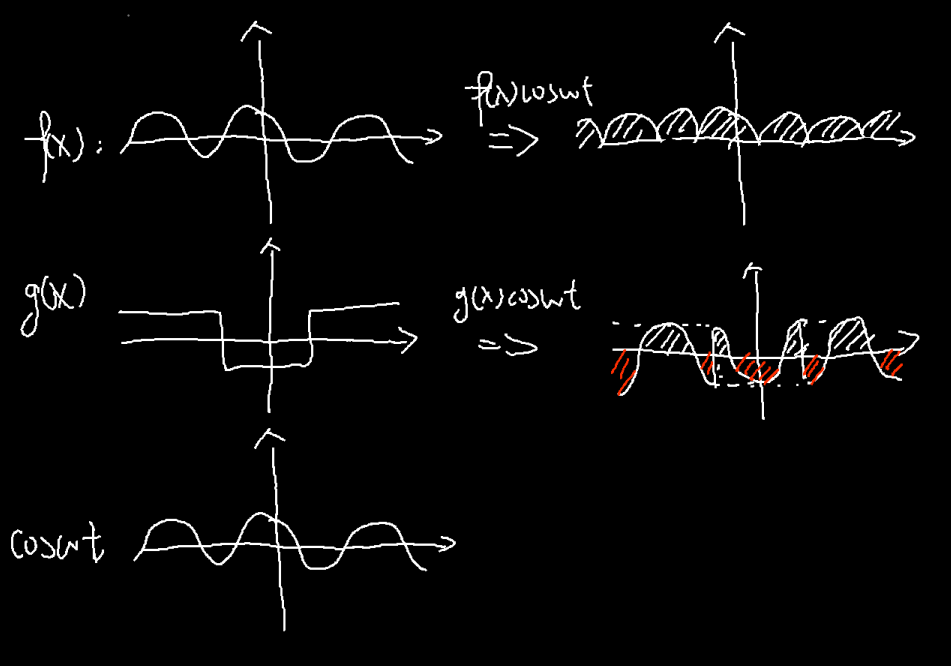 f(x):
f(x)coswt
=>
g(x)
g(x)coswt
=>
coswt